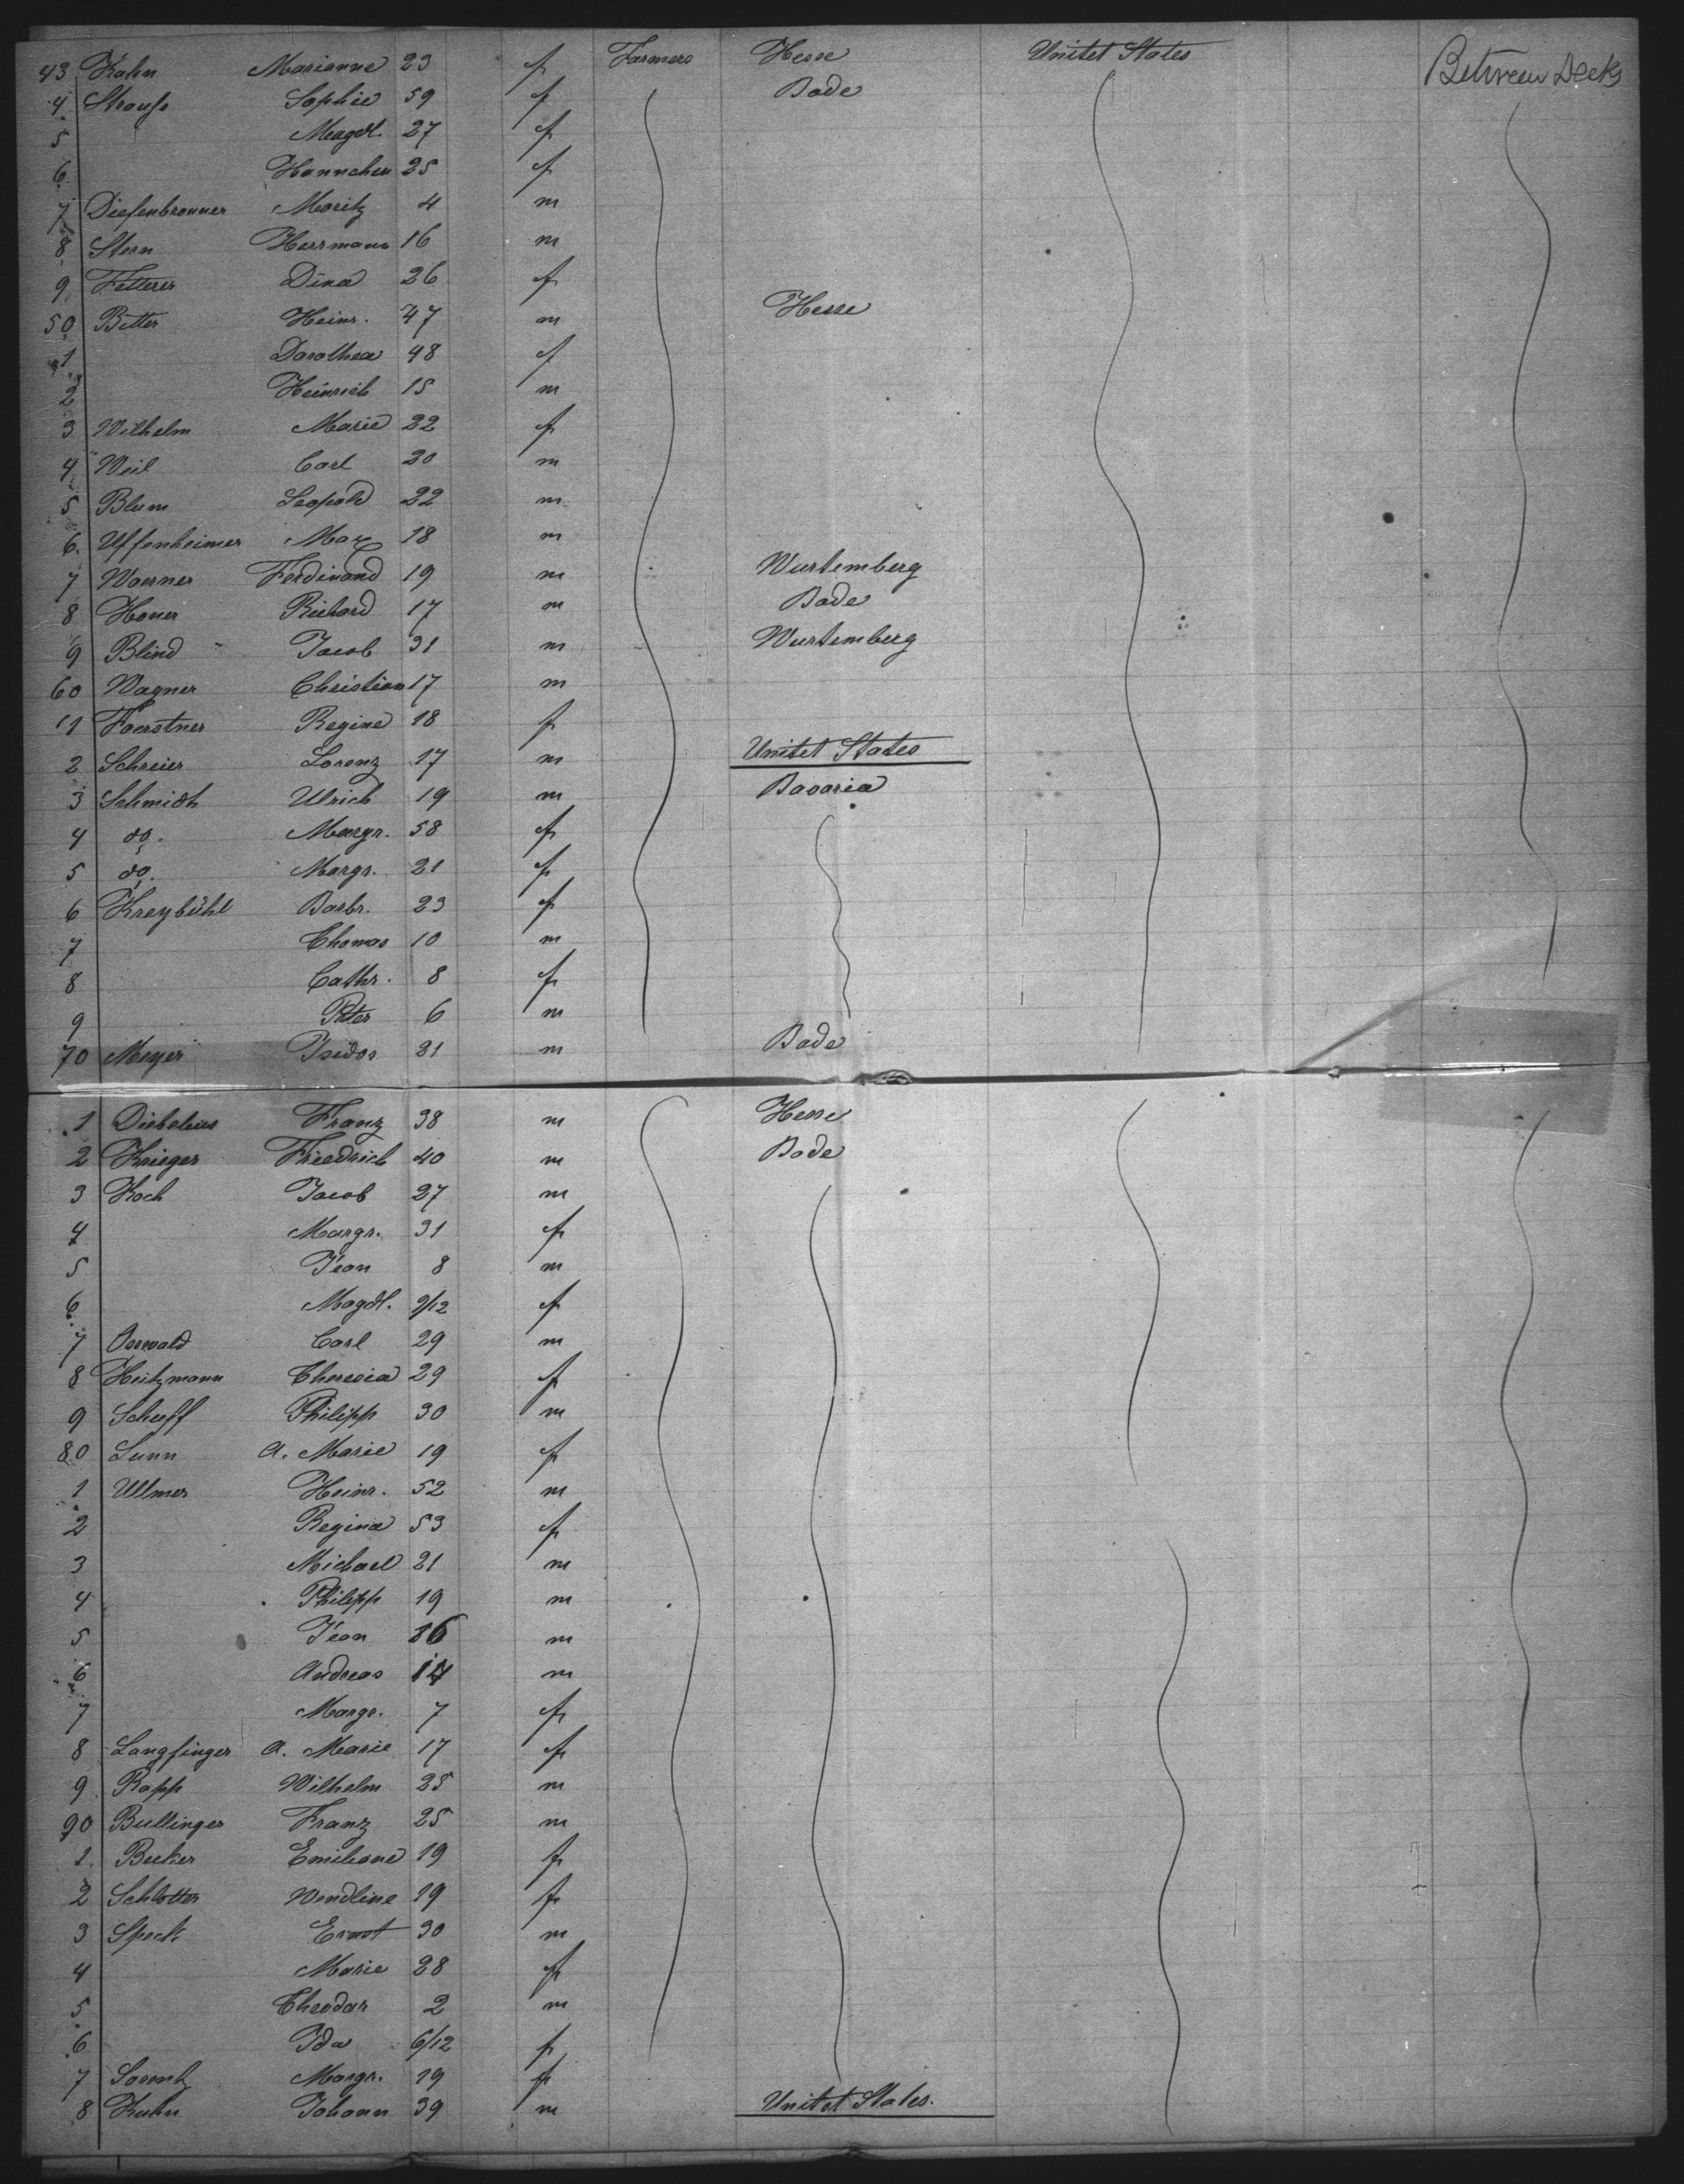 43 Kahn Marianne 23 f Farmers Hesse Unitet States Between Decks
4 Strauss Sophie 59 f Bade
5 Magdl. 27 f
6 Hannchen 25 f
7 Diefenbronner Moritz 4 m
8 Stern Herrmann 16 m
9 Fetterer Dina 26 f
50 Better Heinr. 47 m Hesse
1 Dorothea 48 f
2 Heinrich 15 m
3 Wilhelm Marie 22 f
4 Weil Carl 20 m
5 Blum Leopold 22 m
6. Uffenheimer Max 18 m
7 Woerner Ferdinand 19 m Wurtemberg
8 Honer Richard 17 m Bade
9 Blind Jacob 31 m Wurtemberg
60 Wagner Christian 17 m
11 Foerstner Regine 18 f
2 Schreier Lorenz 17 m Unitet States
3 Schmidt Ulrich 19 m Bavaria
4 do. Margr. 58 f
5 do. Margr. 21 f
6 Kreybühl Barbr. 23 f
7 Thomas 10 m
8 Cathr. 8 f
9 Peter 6 m
70 Meyer Isidor 31 m Bade
1 Diebelius Franz 38 m Hesse
2 Krieger Friedrich 40 m Bade
3 Koch Jacob 27 m
4 Margr. 31 f
5 Jean 8 m
6 Magdl. 9/12 f
7 Carl 29 m
8 Heitzmann Theresia 29 f
9 Scheff Philipp 30 m
80 Lunn A. Marie 19 f
1 Ullmer Heinr. 52 m
2 Regina 53 f
3 Michael 21 m
4 Philipp 19 m
5 Jean 16 m
6 Andreas 14 m
7 Margr. 7 f
8 Langfinger A. Marie 17 f
9 Rapp Wilhelm 25 m
90 Bullinger Franz 25 m
1. Becker Emiliane 19 f
2 Schlotter Wendline 19 f
3 Specht Ernst 30 m
4 Marie 28 f
5 Theodor 2 m
6 Ida 6/12 f
7 Margr. 19 f
8 Kuhn Johann 39 m Unitet States.